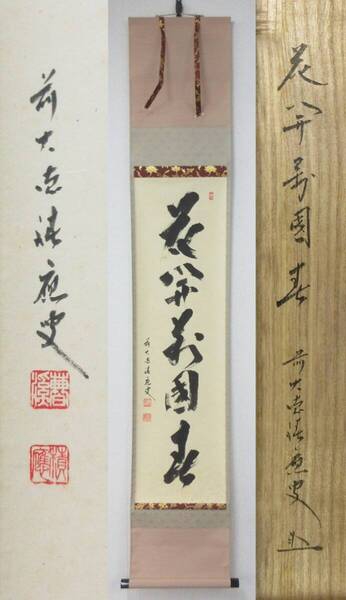 前大徳積應叟
花開萬國春
前大徳積應叟
花開萬國春
前大徳積應叟